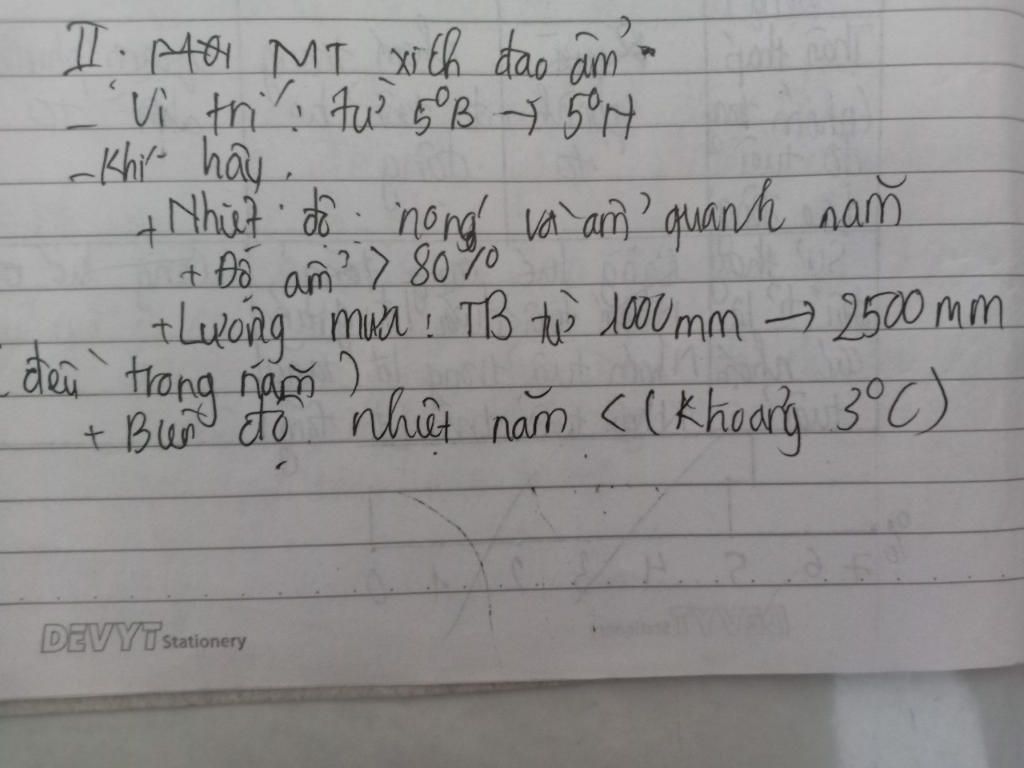 II. MT xích đạo ẩm
- Vị trí: từ 5°B → 5°N
- Khí hậy.
+ Nhiệt độ: nóng và ẩm quanh năm
+ Độ ẩm > 80%
+ Lượng mưa: TB từ 1000mm → 2500mm
đều trong năm)
+ Biên độ nhiệt năm < (khoảng 3°C)
DEVYT Stationery